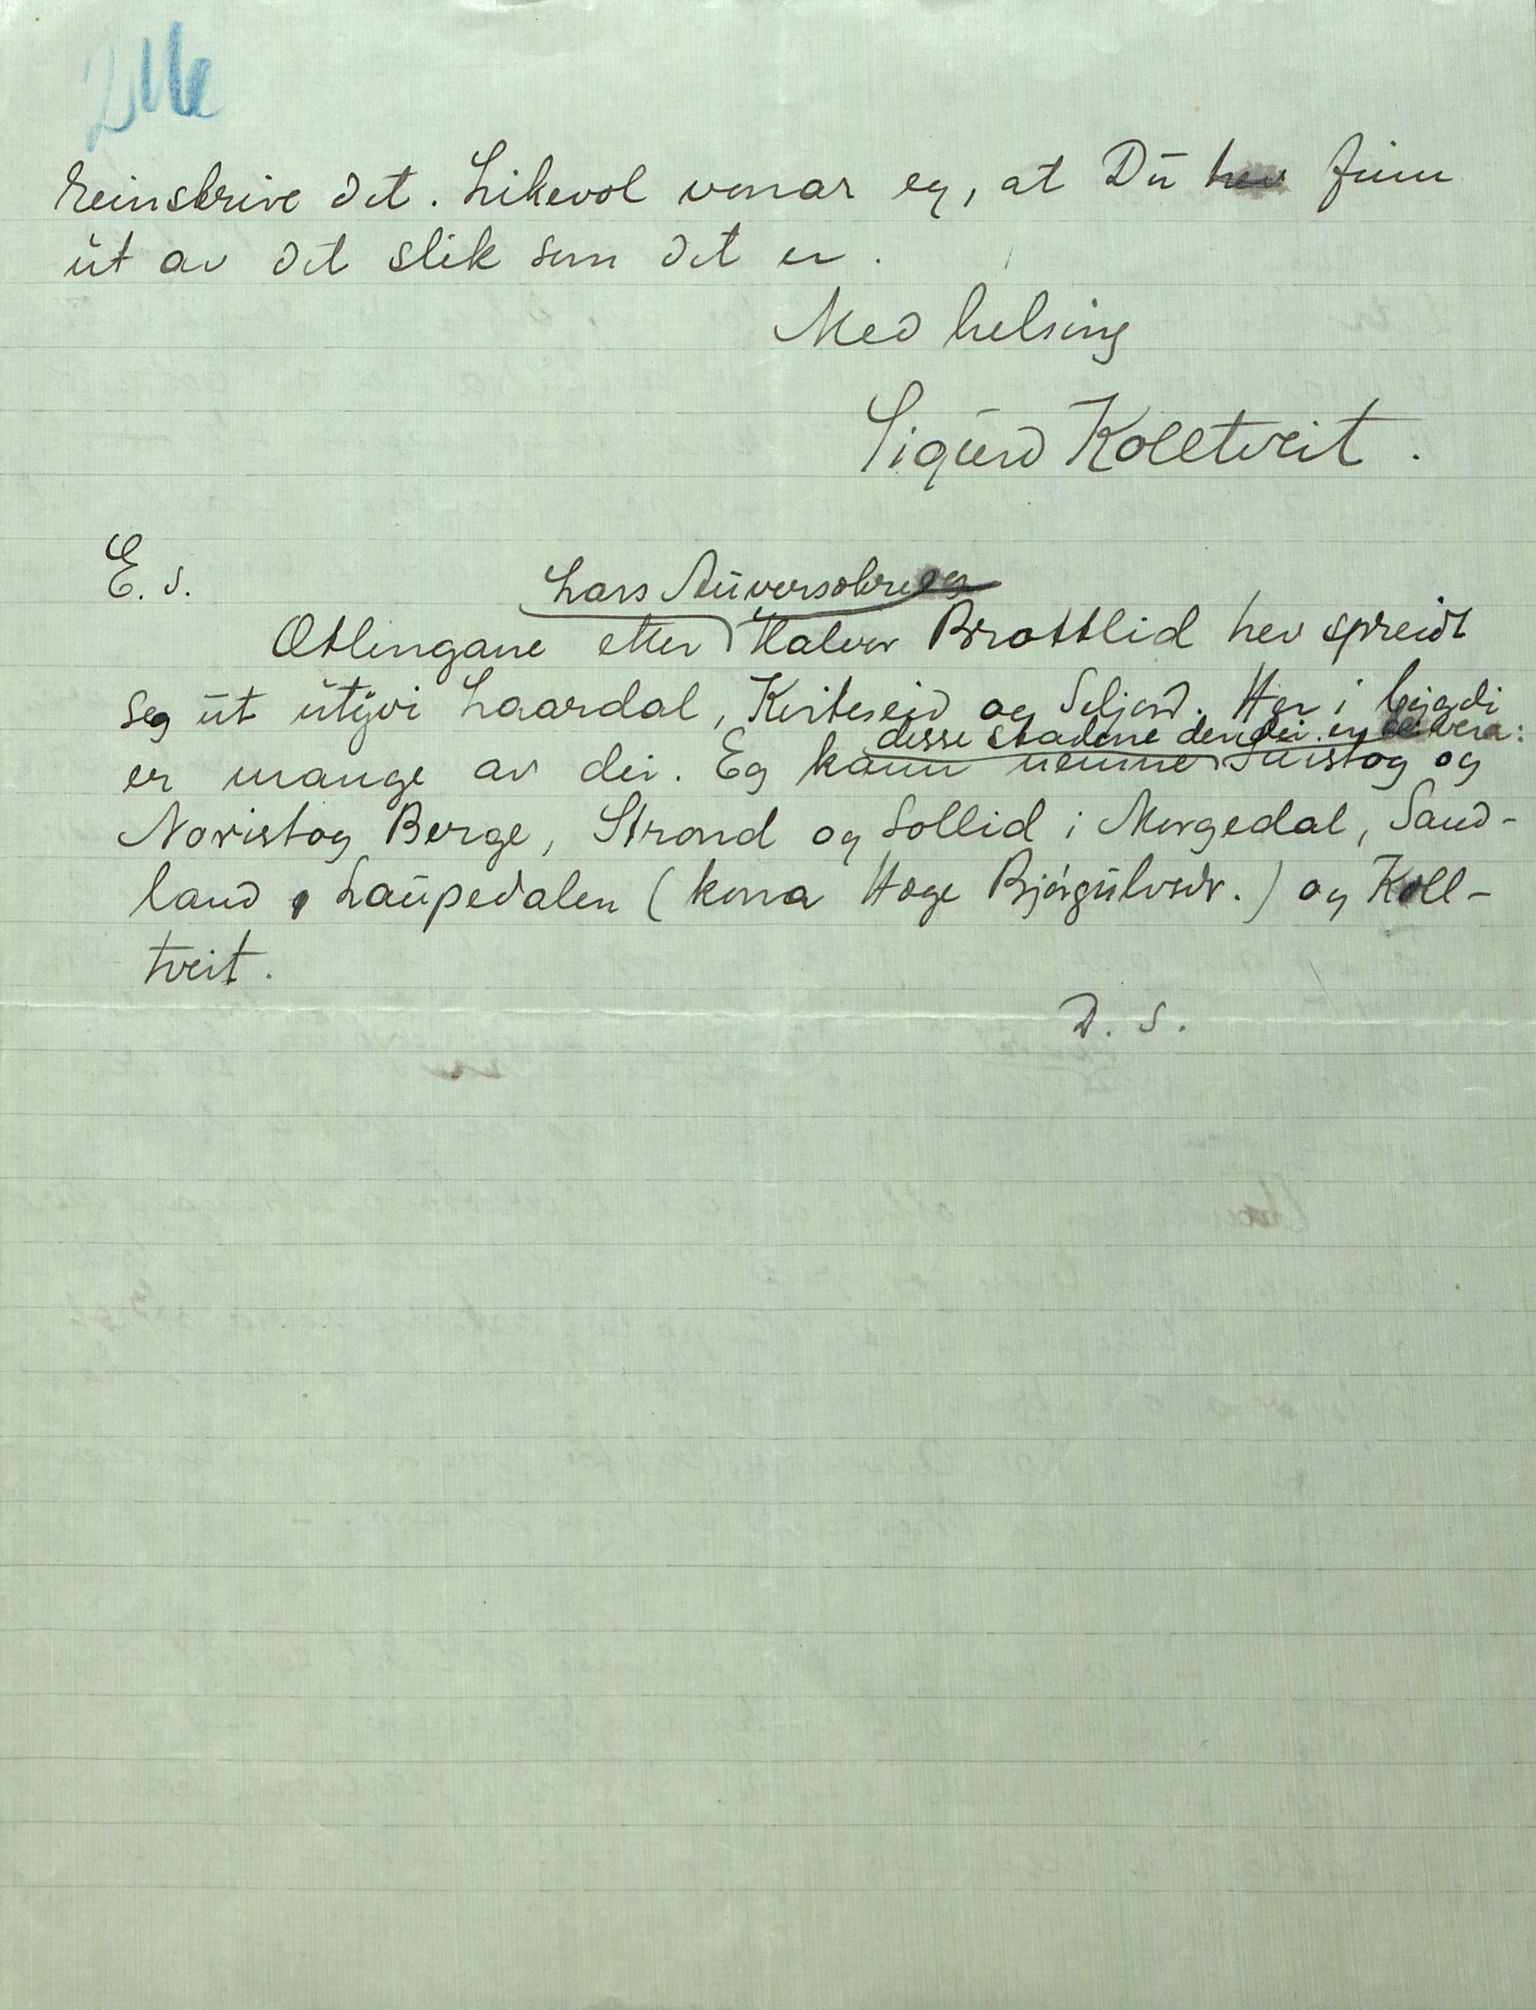 reinskrive det. Likevol vonar eg, at Du hev finn
út av det slik som det er.
Med helsing
Sigurd Kolltveit.
E. s.
Lars Auversøbrekk
Ætlingane etter Halvor Brattlid hev spreidt
seg ut utyvi Laardal, Kviteseid og Seljord. Her i bygdi
desse stadene der dei er vera:
er mange av dei. Eg kann nemne Suistog og
Noristog Berge, Strond og Sollid i Morgedal, Sand-
land, Laupedalen (kona Hæge Bjørgulvsdr.) og Koll-
tveit.
D. s.